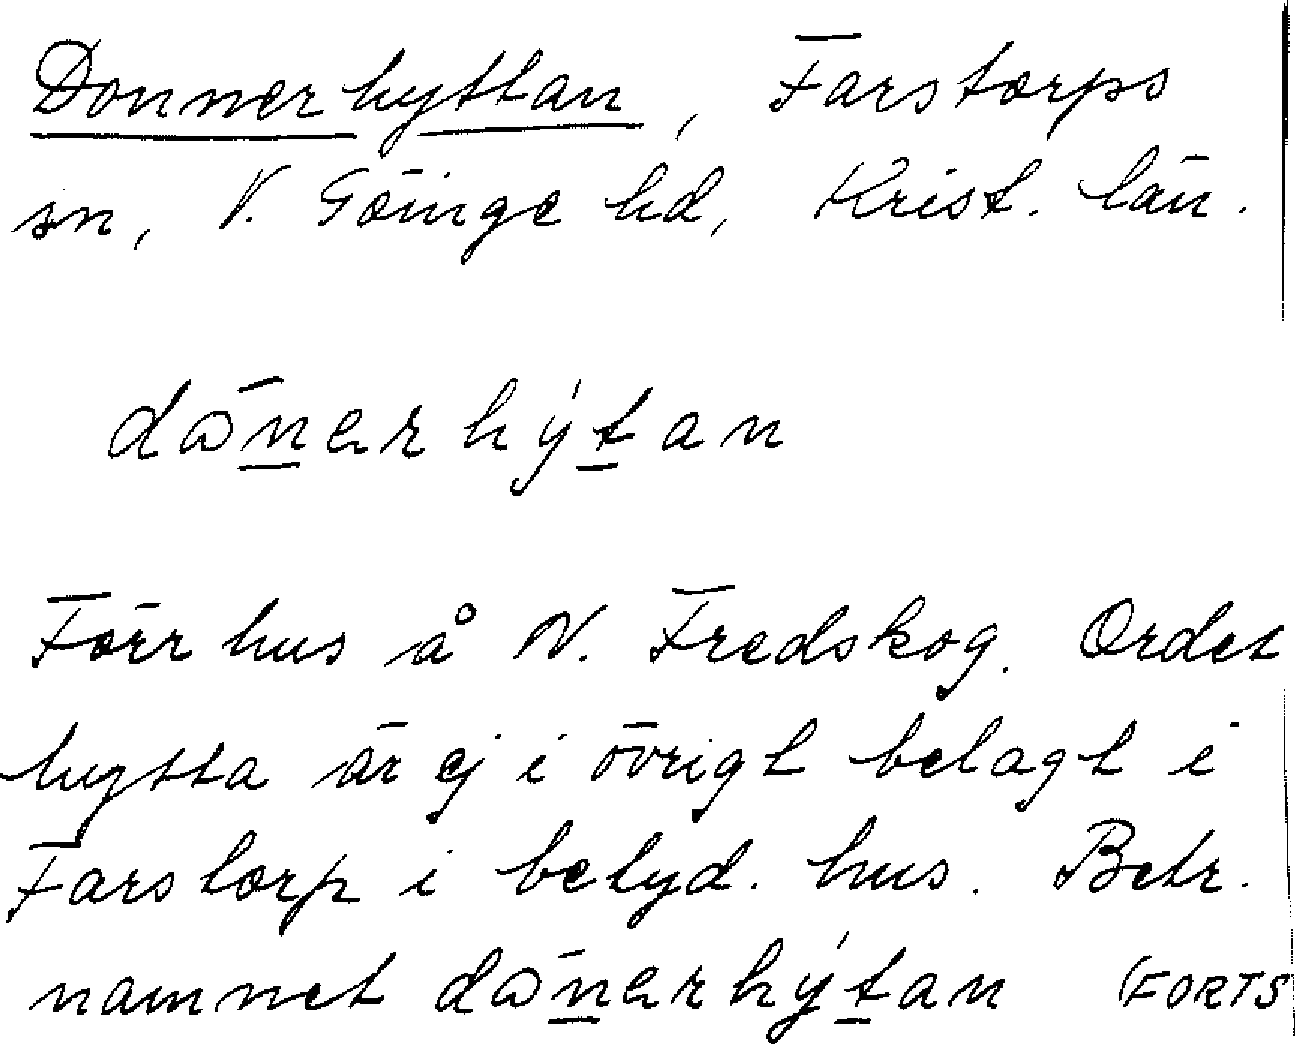 Donnerhyttan, Farstorps
sn, V. Göinge hd, Krist. län.
dōn̲erhýt̲an
Förr hus å N. Fredskog. Ordet
hytta är ej i övrigt belagt i
Farstorp i betyd. hus. Betr.
namnet dōn̲erhýt̲an (FORTS